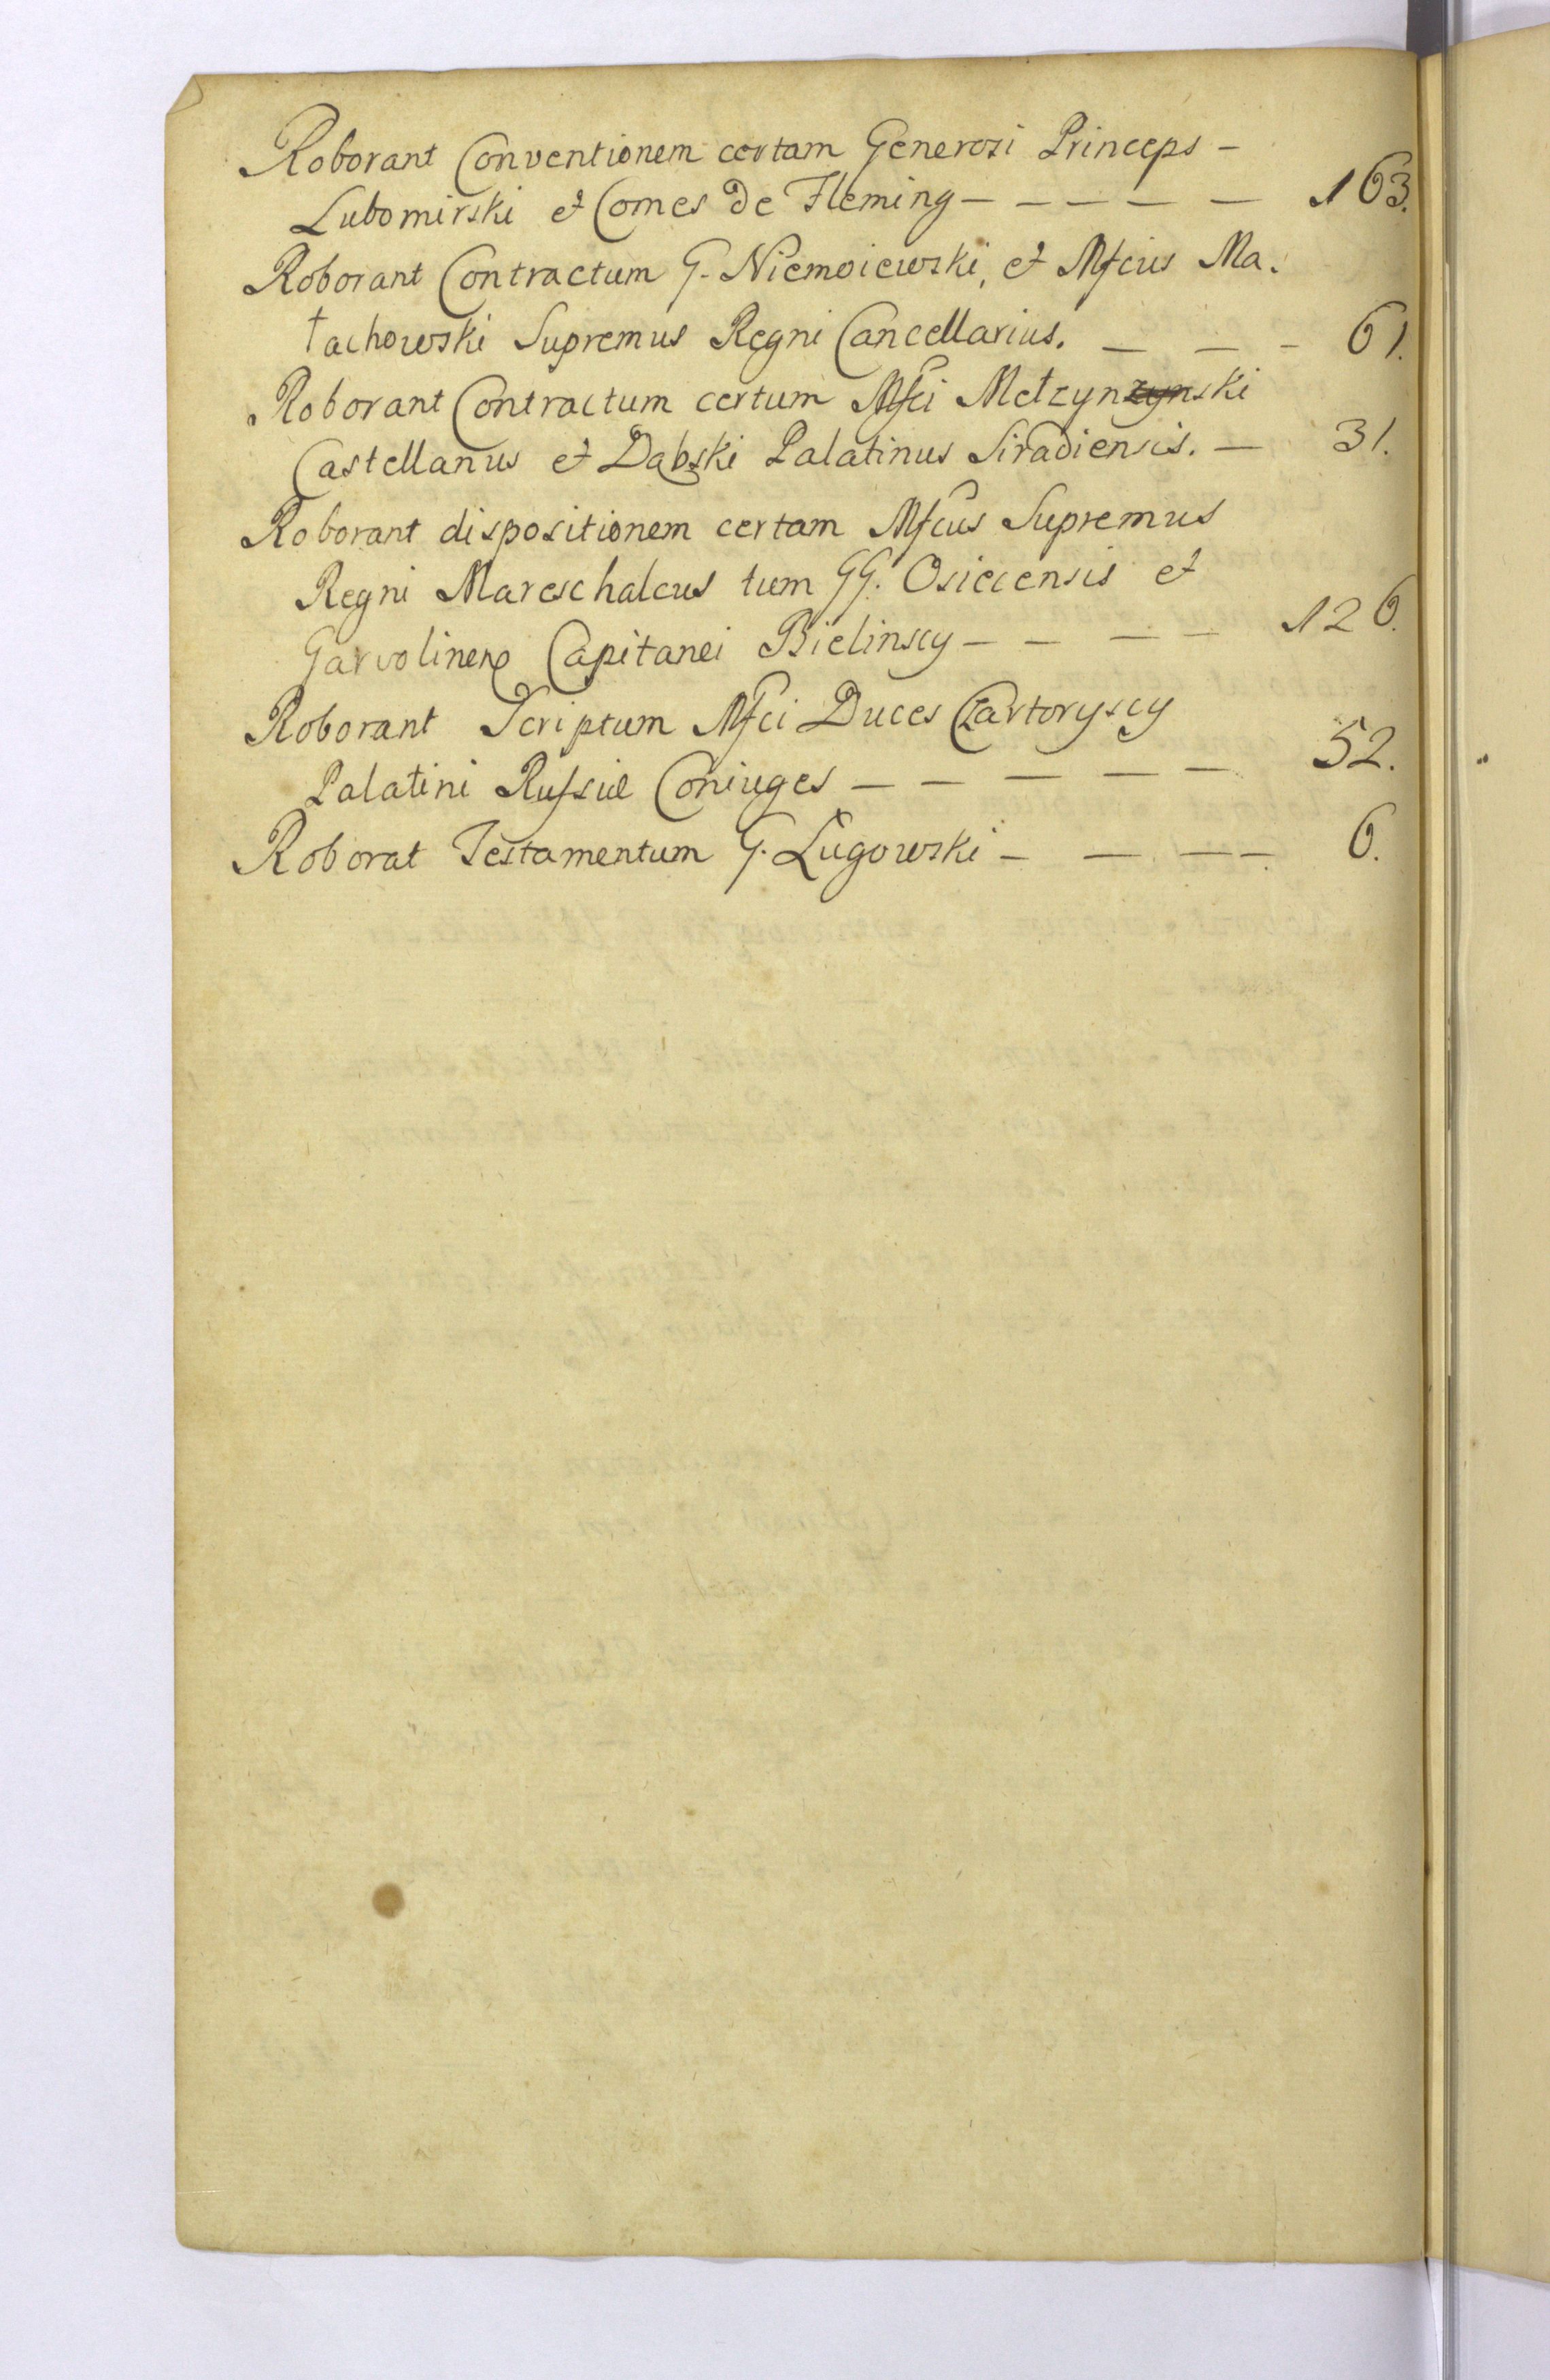 Roborant Conventionem certam Generosi Princeps –
Lubomirski et Comes de Fleming – – – – – 163.
Roborant Contractum G. Niemoiewski, et Mfcus Ma.
łachowski Supremus Regni Cancellarius. – – – 61.
Roborant Contractum certum Mfci Mełzynski
Castellanus et Dąbski Palatinus Siradiensis. – 31.
Roborant dispositionem certam Mfcus Supremus
Regni Mareschalcus tum GG. Osiecensis et
Garvolinen Capitanei Bielinscy – – – – 126.
Roborant Scriptum Mfci Duces Czartoryscy
Palatini Russiæ Coniuges – – – – – 52.
Roborat Testamentum G. Ługowski – – – – 6.